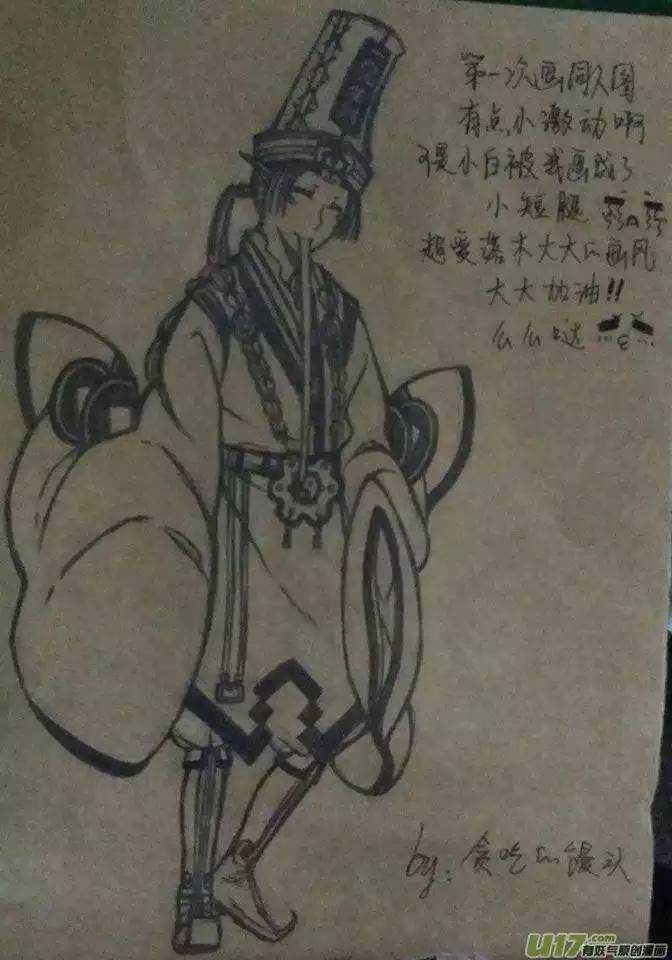 第一次画同人图
有点小激动啊
可是小白被我画成了
小短腿
超爱落木大大的画风
大大加油!!
么么哒
by：贪吃的馒头
U17.com
有妖气原创漫画